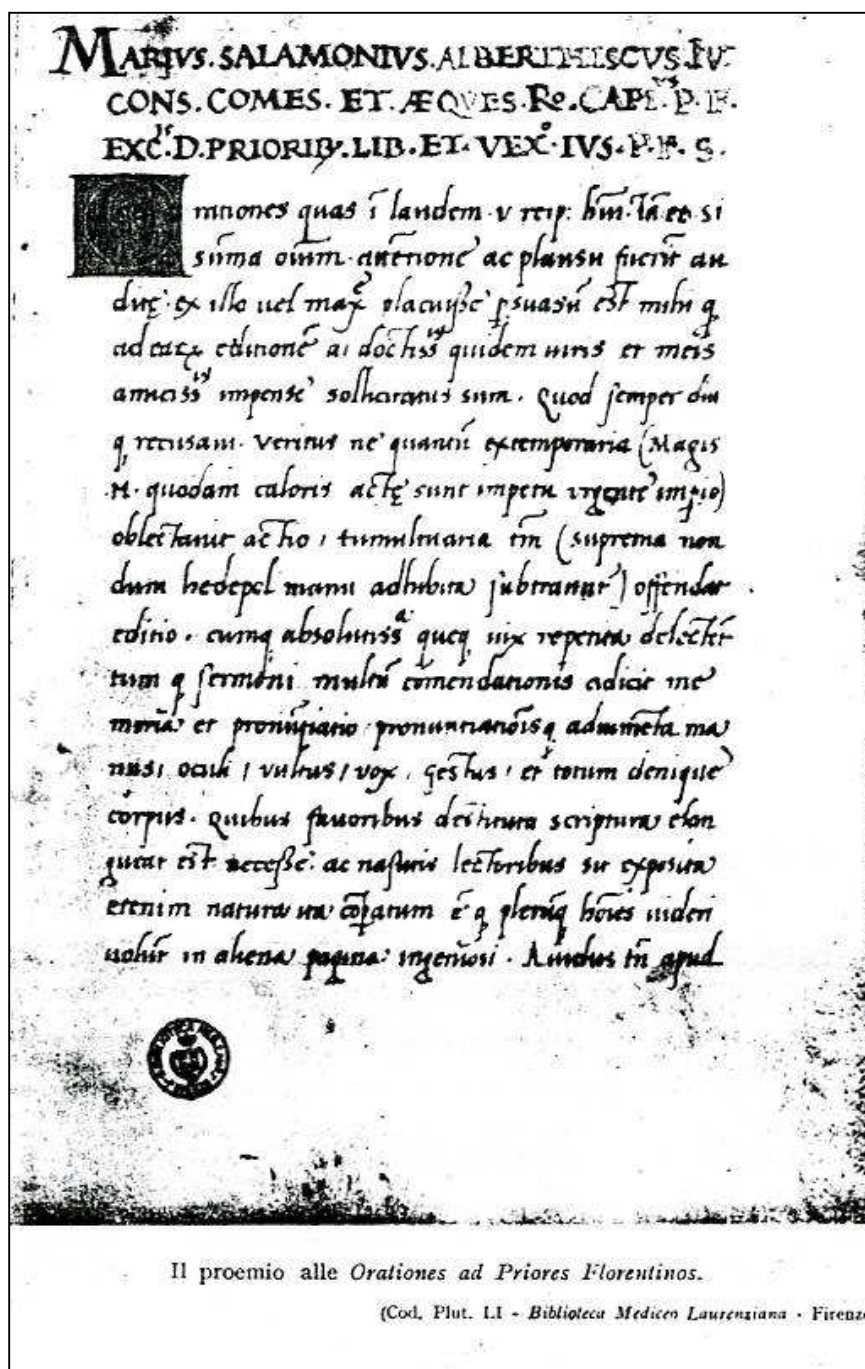 MARIVS. SALAMONIVS. ALBERTHISCVS. IV.
CONS. COMES. ET. ÆQVES. Ro. CAPI. P. F.
EXC. D. PRIORIB. LIB. ET. VEX. IVS. P. F. S.
O rationes quas ĩ laudem v reip: et si
sũma oĩum attẽtione ac plausu fuerũt au
ditę ex illo uel maxẽ placuisse psuasũ est mihi q
ad editionẽ a doctiss quidem uiris et meis
amiciss impense sollicitatus sum. Quod semper diu
q recusaui. Veritus ne quantũ extemporaria (Magis
M. quodam caloris actę sunt impetu vrgente impio)
oblectauit actio, tumultuaria tm̃ (suprema non
dum hedepol manu adhibita subtrantur) offendat
editio. cumq absolutiss queq uix repetita delectẽt
tum q sermoni multũ cõmendationis adicit me
moria et pronũtiatio pronuntiatiõisq adiumẽta ma
nus, oculi / vultus / vox, gestus, et totum denique
corpus. Quibus fauoribus destituta scriptura elan
gueat est necesse. ac nasutis lectoribus sit exposita
etenim natura ita cõpatum ẽ q plerũq hoĩes uideri
uolũt in aliena pagina ingeniosi. Auidus tñ apud
Il proemio alle Orationes ad Priores Florentinos.
(Cod. Plut. LI - Biblioteca Medicea Laurenziana - Firenze